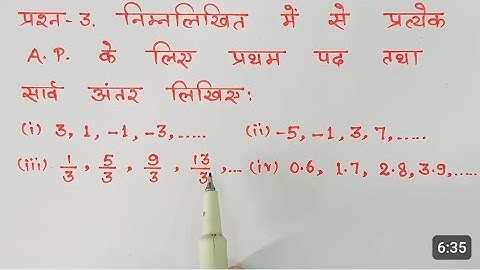 प्रश्न-3. निम्नलिखित में से प्रत्येक
A.P. के लिए प्रथम पद तथा
सार्व अंतर लिखिए:
(i) 3, 1, -1, -3, ..... (ii) -5, -1, 3, 7, .....
(iii) 1/3, 5/3, 9/3, 13/3, ... (iv) 0.6, 1.7, 2.8, 3.9, .....
6:35